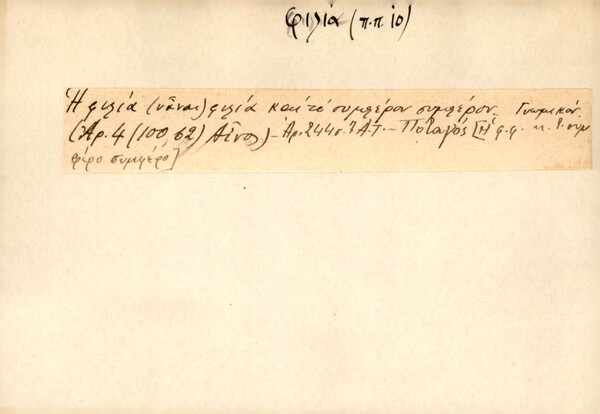 φιλία (π.π 10)
Ἡ φιλία (νἆναι) φιλία καὶ τὸ συμφέρον συμφέρον. Γνωμικόν.
(Ἀρ. 4 (100, 62) Αἶνος) - Ἀρ. 244 Α.Τ. - Ποταγός [Ἡ φ. φ. κ. τ. συμ
φέρο συμφέρο]